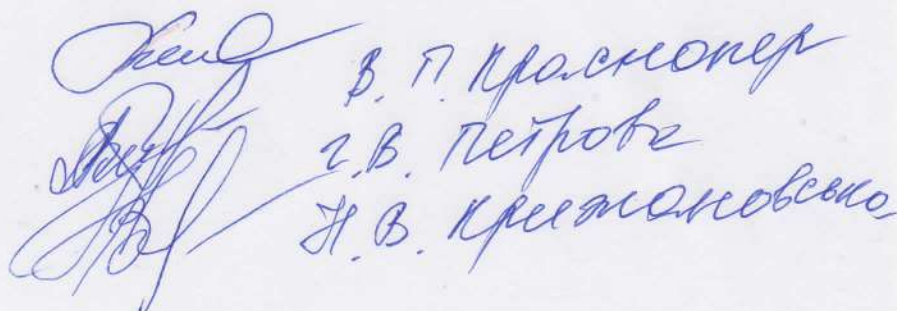 В. П. Краснопер
Г. В. Петрова
Н. В. Крижановська